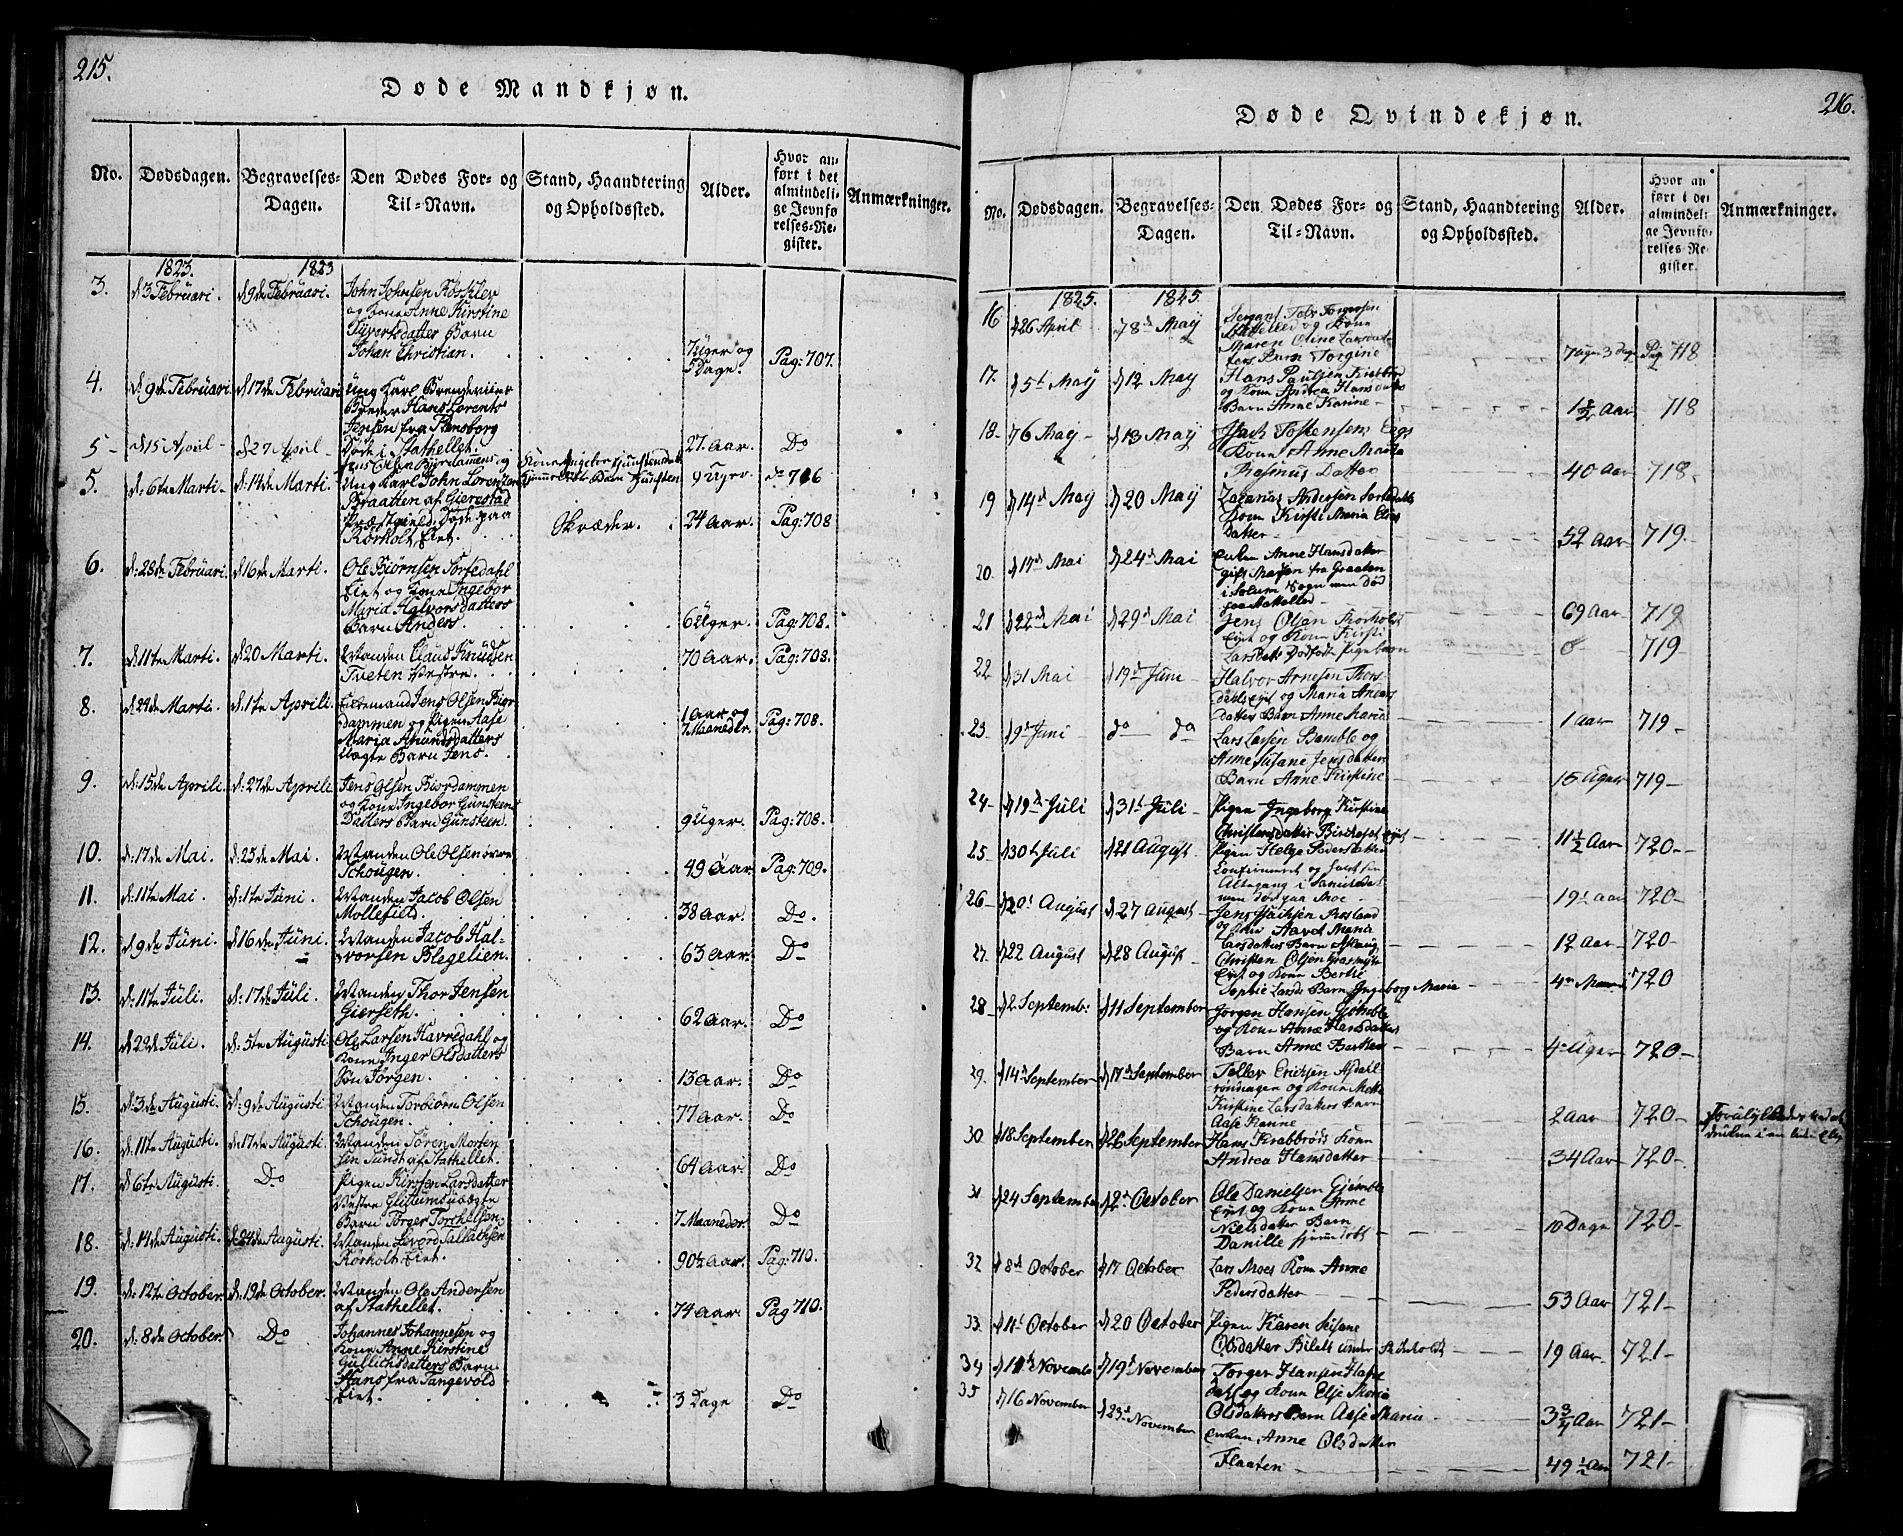 215.
Døde Mandkjøn.
No. Dødsdagen. Begravelses-Dagen. Den Dødes For- og Til-Navn. Stand, Haandtering og Opholdssted. Alder. Hvor anført i det almindelige Jevnførelses-Register. Anmærkninger.
1823. 1823
3. d 3 Februari. d 9de Februari. John Johnsen
og Kone Anne Kirstine
Syvertsdatters Barn
Johan Christian. 7 Uger og 5 Dage. Pag: 707.
4. d. 9de Februari d 17de Februari Ung Karl
Hans Lorents
Jensen fra Flensborg
Døde i Stathellet. 27. Aar. Do
5 - d 15 April - d 27 April - Jens Olsen Biørdammens og 9 Uger. do 716
5. d: 6te Marti - d: 14de Marti. Ung Karl John Lorentsen
Braatten af Gierestad
Præstgield. Døde paa
Rørholt Eiet. Skræder. 24 Aar. Pag: 708
6. d: 28de Februari. d 16de Marti. Ole Biørnsen Torsedahl
Eiet og Kone Ingebor
Maria Halvorsdatters
Barn Anders. 6 Uger. Pag: 708.
7. d: 11te Marti d 20 Marti. Manden Claus Knudsen
Tveten Vestre. 70 Aar. Pag: 708.
8. d: 24de Marti. d: 1te Aprili. Eiermand Jens Olsen Biør-
dammen og Pigen Aase
Maria Amundsdatters
Uægte Barn Jens. 1 Aar og 7 Maaneder. Pag: 708.
9. d: 15de Aprili. d: 27de Aprili Jens Olsen Biørdammen
og Kone Ingebor Gunsteens
Datters Barn Gunsteen. 9 Uger. Pag: 708.
10. d: 17de Mai. d: 25de Mai. Manden Ole Olsen øvre
Schougen. 49 Aar Pag: 709.
11. d: 11te Mai. d: 1te Juni. Manden Jacob Olsen
Mollefielt. 38 Aar. Do.
12. d 9de Juni. d 16de Juni. Manden Jacob Hal-
vorsen Blegelien. 63 Aar. Do
13. d: 11te Juli. d: 17de Juli. Manden Thor Jensen
Gierseth. 62 Aar. Do
14. d 29de Juli. d: 5te Augusti Ole Larsen Havredahl og
Kone Inger Olsdatters
Søn Jørgen. 13 Aar. Do
15. d: 3de Augusti. d: 9de Augusti. Manden Torbiørn Olsen
Schougen. 77 Aar. Do
16. d: 11te Augusti. d: 17de Augusti. Manden Søren Morten
sen Sundt af Stathellet. 64 Aar. Do
17. d 6te Augusti. Do Pigen Kirsten Larsdatter
Vestre Uægte
Barn Torger Torchelsen. 7 Maaneder. Do
18. d: 14de Augusti. d: 24de Augusti. Manden
Rørholt Eiet. 90½ Aar. Pag: 710.
19. d: 12te October. d. 19de October. Manden Ole Andersen
af Stathellet. 74 Aar. Pag 710.
20. d. 8de October. Do Johannes Johannesen og
Kone Anne Kirstine
Gullichsdatters Barn
Hans fra Tangevold
Eiet. 3 Dage Do
216.
Døde Qvindekjøn.
No. Dødsdagen. Begravelses-Dagen. Den Dødes For- og Til-Navn. Stand, Haandtering og Opholdssted. Alder. Hvor anført i det almindelige Jevnførelses-Register. Anmærkninger.
1825. 1825.
16 d 26 April d 8de Maij
Stathellet og Kone
Maren Oline Larsdat-
ters Barn Torgine 7 Uger 3 Dage Pag 718
17. d 5t Maij d 12 Maij Hans Paulsen
og Kone Andrea Hansdatters
Barn Anne Karine - 1½ Aar 718
18- d 6 Maij - d 13 Maij Isach Tostensens
Kone Anne Maria
Rasmus Datter 40 Aar 718-
19 d 14d Maij d 20 Maij Zacarias Andersen
Kone Kirsti Maria
Datter 52 Aar 719.
20. d 17d Mai d 24d Mai Enken Anne Hansdatter
fra Graaten
i Solum Sogn men død
paa Stathelled - 69 Aar 719
21 d 22d Mai d 29d Mai Jens Olsen Rørholt
Eiet og Kone Kirsti
Larsdatters Pigebarn 0 719-
22 d 31 Mai d 19d Juni Halvor Arnesen
og Maria
Datters Barn Anne Maria 1 Aar 719-
23. d 9d Juni do do Lars Larsen Bamble og
Anne Susane Jensdatters
Barn Anne Kirstine 16 Uger 719-
24- d 19d Juli d 31t Juli Pigen Ingeborg Kirstine
Christensdatter 11½ Aar 720-
25. d 30t Juli d 21 August. Pigen Helge Pedersdatter
Confirmeret og
men død paa Moe - 19 Aar 720-
26- d 20d August d 27 August Jens Isachsen Rosland
og Maria
Larsdatters Barn Aslaug 12 Aar 720-
27. d 22 August d 28 August Christen Olsen
Eiet og Kone Berthe
Sophie Larsds Barn Ingeborg Maria 720
28- d 2 Septemb: d 11 September Jørgen Hansen Gjømle
og Kone Anne Hansdatters
Barn Anne Berthea 4 Uger 720-
29. d 14d September d 17d September Tellev Ericksen Asdahl
og Kone Mette
Kirstine Larsdatters Barn
Aase Hanne 2 Aar 720-
30 d 18 September d 26 September Hans Krabbrøds Kone
Andrea Hansdatter 34 Aar 720-
31 d 24 September d 2d October Ole Danielsen Gjømle
Eiet og Kone Anne
Nielsdatter Barn
Danille hjemdøbt 10 Dage 720-
32 d 8d October d 17 October Lars Moes Kone Anne
Pedersdatter 53 Aar 721-
33. d 11t October d 20 October Pigen Karen Susane
Olsdatter 19 Aar. 721-
34 d 11d November d 19d November Torger Hansen
og Kone Else Maria
Olsdatters Barn Aase Maria 3¾ Aar 721-
35 d 16 November d 23d November Enken Anne Olsdatter
Flaaten 49½ Aar 721-